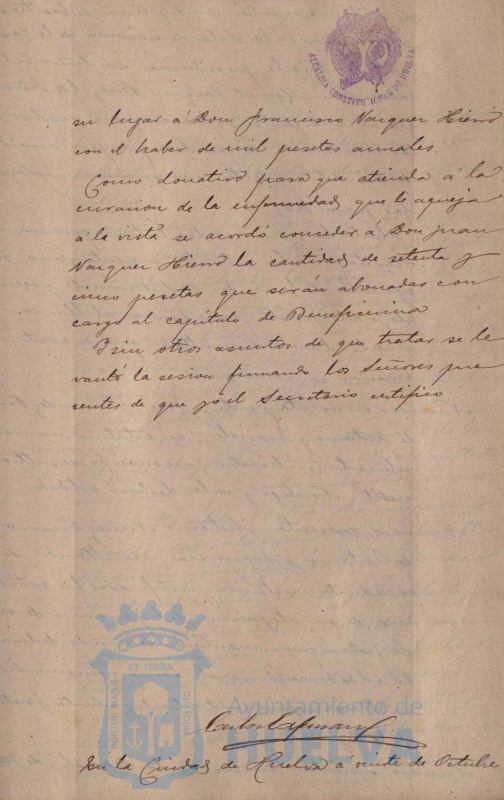 ALCALDIA CONSTITUCIONAL DE HUELVA
su lugar á Don Francisco Vazquez Hierro
con el haber de mil pesetas anuales.
Como donativo para que atienda á la
curacion de la enfermedad que le aqueja
á la vista se acordó conceder á Don Juan
Vazquez Hierro la cantidad de setenta y
cinco pesetas que serán abonadas con
cargo al capítulo de Beneficencia
Y sin otros asuntos de que tratar se le
vantó la sesion firmando los Señores pre
sentes de que yo el Secretario certifico
PORTUS MARIS
ET TERRAE
CUSTODIA
Ayuntamiento de
HUELVA
En la Ciudad de Huelva á veinte de Octubre